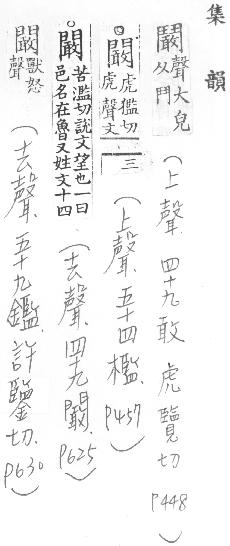 集韻
闞聲大皃
从門
(上聲 四十九敢 虎覽切 P448)
闞虎檻切
虎聲文
三
(上聲 五十四檻 P457)
闞苦濫切說文望也一曰
邑名在魯又姓文十四
(去聲 四十九闞 P625)
闞獸怒
聲
(去聲 五十九鑑 許鑒切 P630)